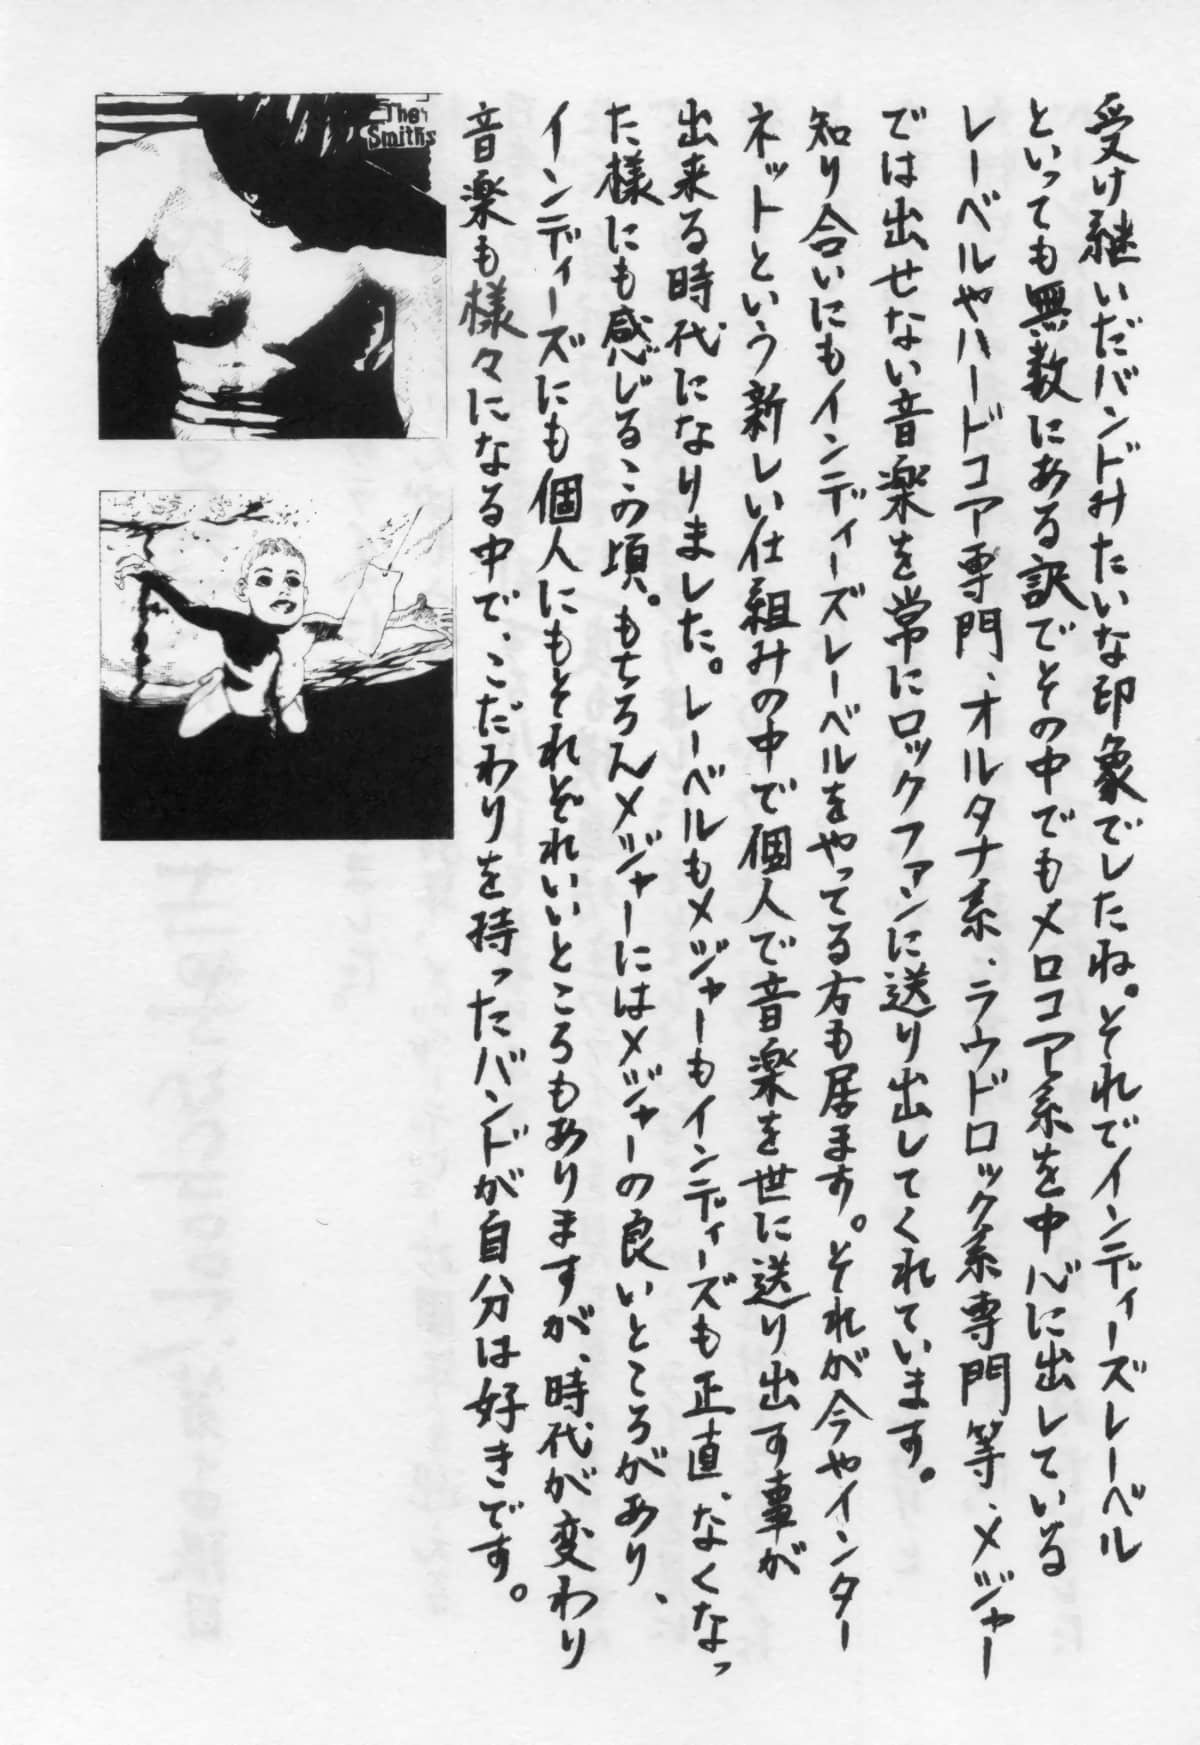 受け継いだバンドみたいな印象でしたね。それでインディーズレーベル
といっても無数にある訳でその中でもメロコア系を中心に出している
レーベルやハードコア専門、オルタナ系、ラウドロック系専門等、メジャー
では出せない音楽を常にロックファンに送り出してくれています。
知り合いにもインディーズレーベルをやってる方も居ます。それが今やインター
ネットという新しい仕組みの中で個人で音楽を世に送り出す事が
出来る時代になりました。レーベルもメジャーもインディーズも正直、なくなっ
た様にも感じるこの頃。もちろんメジャーにはメジャーの良いところがあり、
インディーズにも個人にもそれぞれいいところもありますが、時代が変わり
音楽も様々になる中で、こだわりを持ったバンドが自分は好きです。
The Smiths